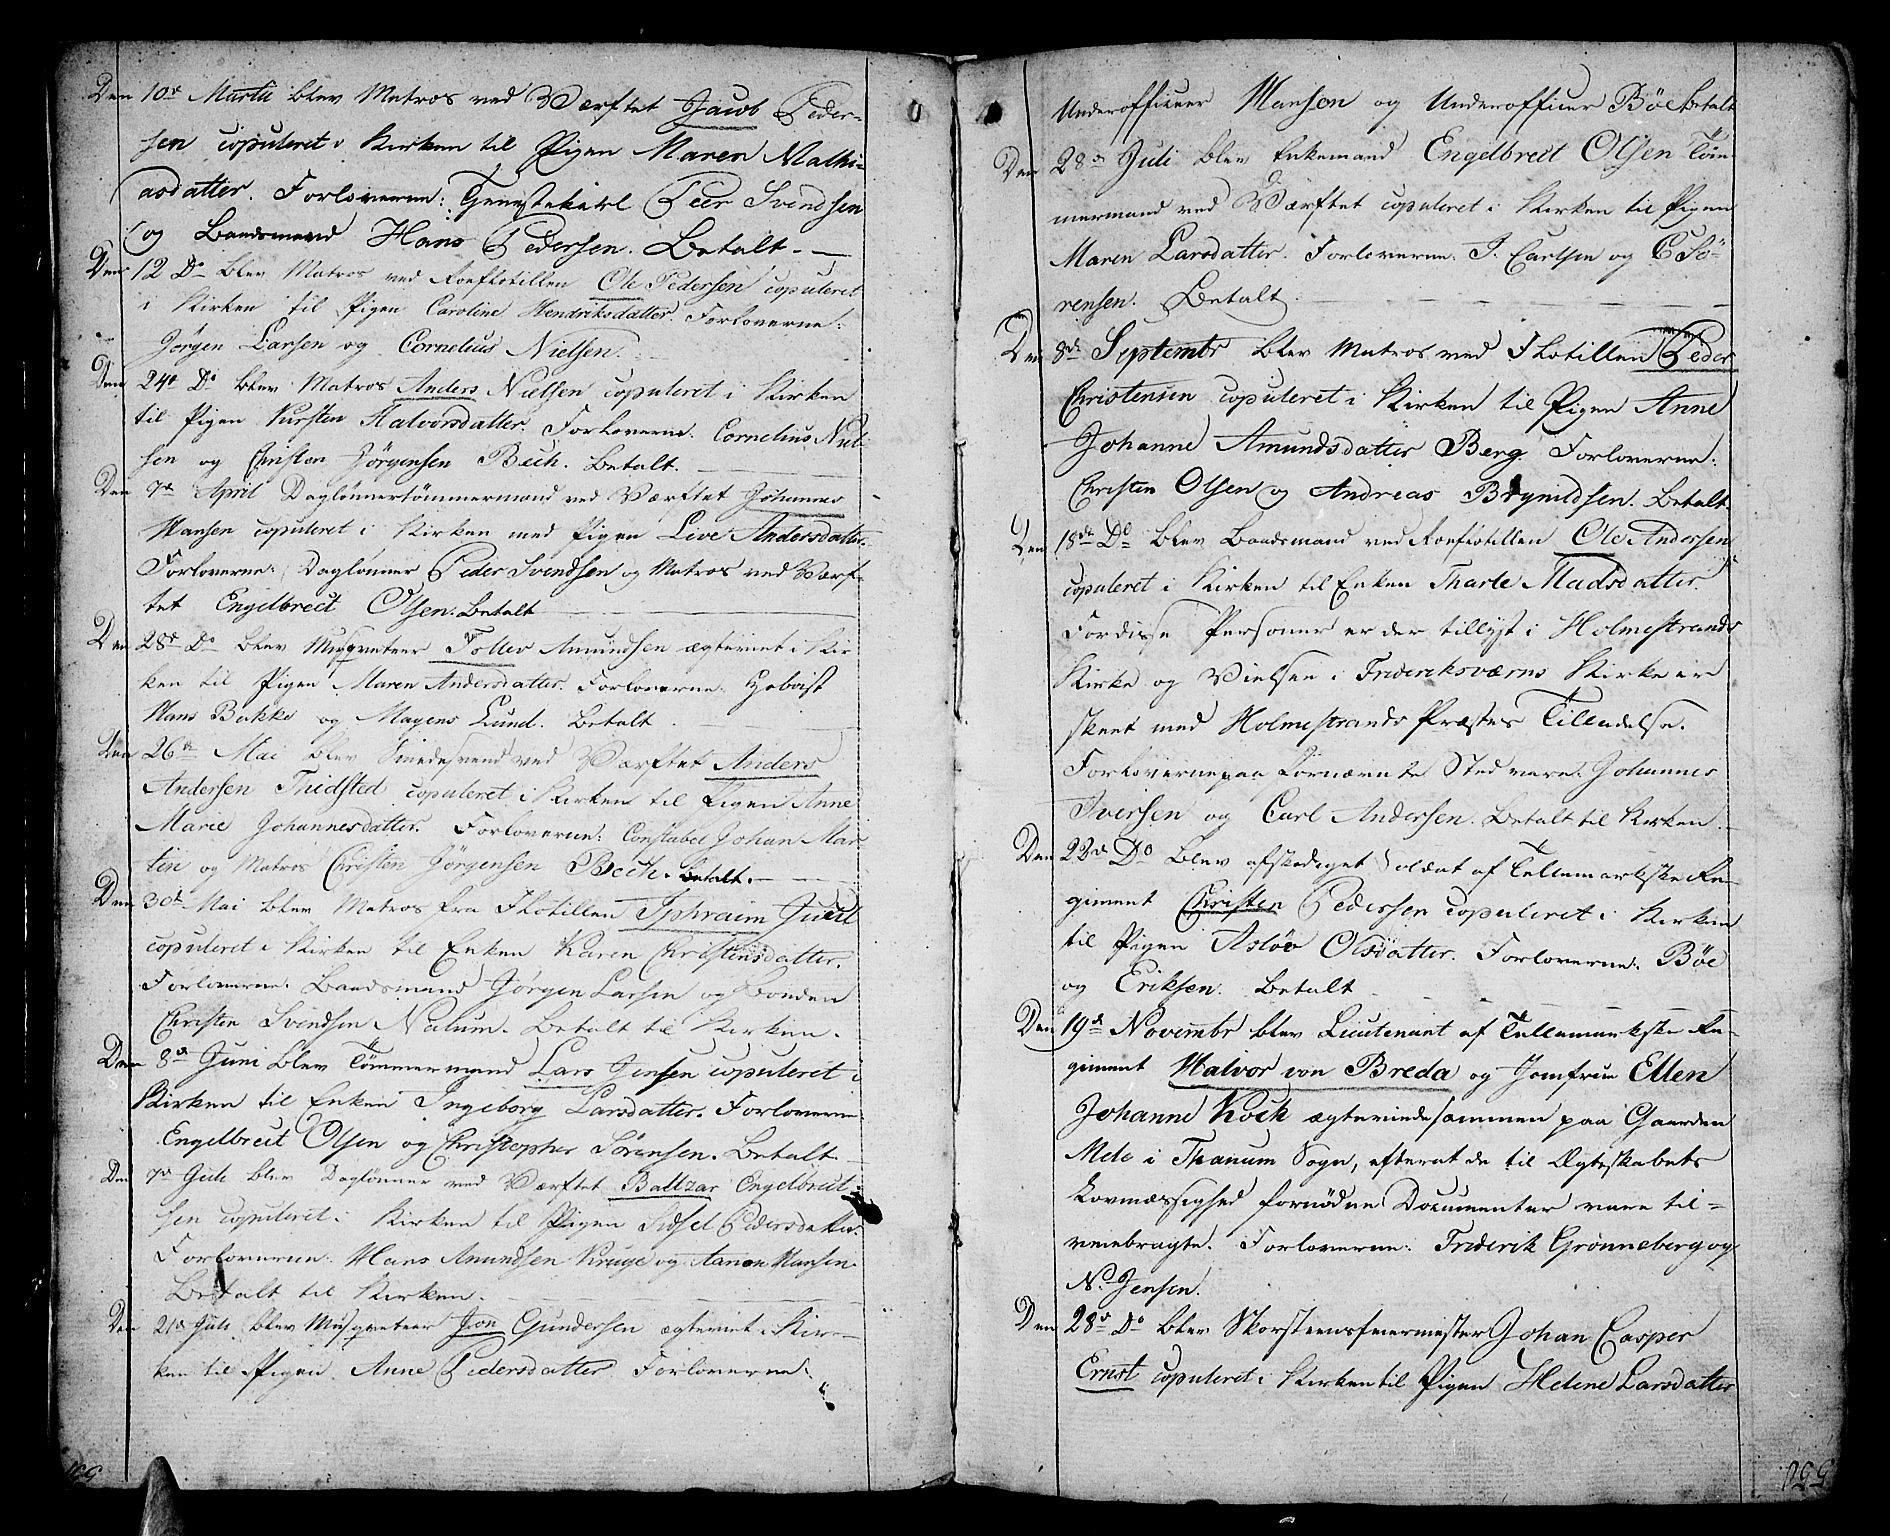 Den 10de Martii blev Matros ved Værftet Jacob Peder-
sen copuleret i Kirken til Pigen Maren Mathi-
asdatter. Forloverne: Peer Svendsen
og Baadsmand Hans Pedersen. Betalt.
Den 12 Do blev Matros ved Roeflotillen Ole Pedersen copuleret
i Kirken til Pigen Caroline Hendriksdatter. Forloverne:
Jørgen Larsen og Cornelius Nielsen.
Den 24de Do blev Matros Anders Nielsen copuleret i Kirken
til Pigen Kirsten Halvorsdatter. Forloverne: Cornelius Niel-
sen og Christen Jørgensen Bech. Betalt.
Den 7de April Daglønnertømmermand ved Værftet Johannes
Hansen copuleret i Kirken med Pigen Live Andersdatter.
Forloverne: Daglønner Peder Svendsen og Matros ved Værf-
tet Engelbrect Olsen. Betalt
Den 28de Do blev Musqveteer Tollev Amundsen ægteviet i Kir-
ken til Pigen Maren Andersdatter. Forloverne: Hoboist
Hans Bakke og Magens Lund. Betalt.
Den 26de Mai blev Smedesvend ved Værftet Anders
Andersen Thidsted copuleret i Kirken til Pigen Anne
Marie Johannesdatter. Forloverne: Constabel Johan Mar-
tin og Matros Christen Jørgensen Bech. Betalt.
Den 30te Mai blev Matros fra Flotillen Iphraim Juell
copuleret i Kirken til Enken Karen Christensdatter.
Forloverne: Baadsmand Jørgen Larsen og Bonden
Christen Svendsen Nalum. Betalt til Kirken.
Den 8de Juni blev Tømmermand Lars Jensen copuleret i
Kirken til Enken Ingeborg Larsdatter. Forloverne:
Engelbrect Olsen og Christopher Sørensen. Betalt.
Den 7de Juli blev Daglønner ved Værftet Baltzar Engelbrect-
sen copuleret i Kirken til Pigen Sidsel Pedersdatter.
Forloverne: Hans Amundsen Kruge og Aanon Hansen.
Betalt til Kirken.
Den 21de Juli blev Musqveteer Jon Gundersen ægteviet i Kir-
ken til Pigen Anne Pedersdatter Forloverne:
Underofficeer Hansen og Underofficeer Böe betalt
Den 28de Juli blev Enkemand Engelbrect Olsen Töm-
mermand ved Værftet copuleret i Kirken til Pigen
Maren Larsdatter. Forloverne: J. Carlsen og C Sö-
rensen. Betalt.
Den 8de Septembr blev Matros ved Flotillen Peder
Christensen copuleret i Kirken til Pigen Anne
Johanne Amundsdatter Berg. Forloverne:
Christen Olsen og Andreas Brynildsen. Betalt.
Den 18de Do blev Baadsmand ved Roeflotillen Ole Andersen
copuleret i Kirken til Enken Tharle Madsdatter.
For disse Personer er der tillyst i Holmestrands
Kirke og Vielsen i Frideriksværns Kirke er
skeet med Holmestrands Præstes Tilladelse.
Forloverne paa fornævnte Sted vare: Johannes
Iversen og Carl Andersen. Betalt til Kirken.
Den 22de Do blev afskediget Soldat af Tellemarkske Re-
giment Christen Pedersen copuleret i Kirken
til Pigen Aslöv Olsdatter. Forloverne: Böe
og Eriksen. betalt
Den 19de Novembr blev Lieutenant af Tellemarkske Re-
giment Halvor von Breda og Jomfrue Ellen
Johanne Kock ægteviede sammen paa Gaarden
Mele i Thanum Sogn, efterat de til Ægteskabets
Lovmæssighed fornødne Documenter vare til-
veiebragte. Forloverne: Friderik Grönneberg og
N. Jensen.
Den 28de Do blev Skorsteensfeiermester Johan Casper
Ernst copuleret i Kirken til Pigen Helene Larsdatter